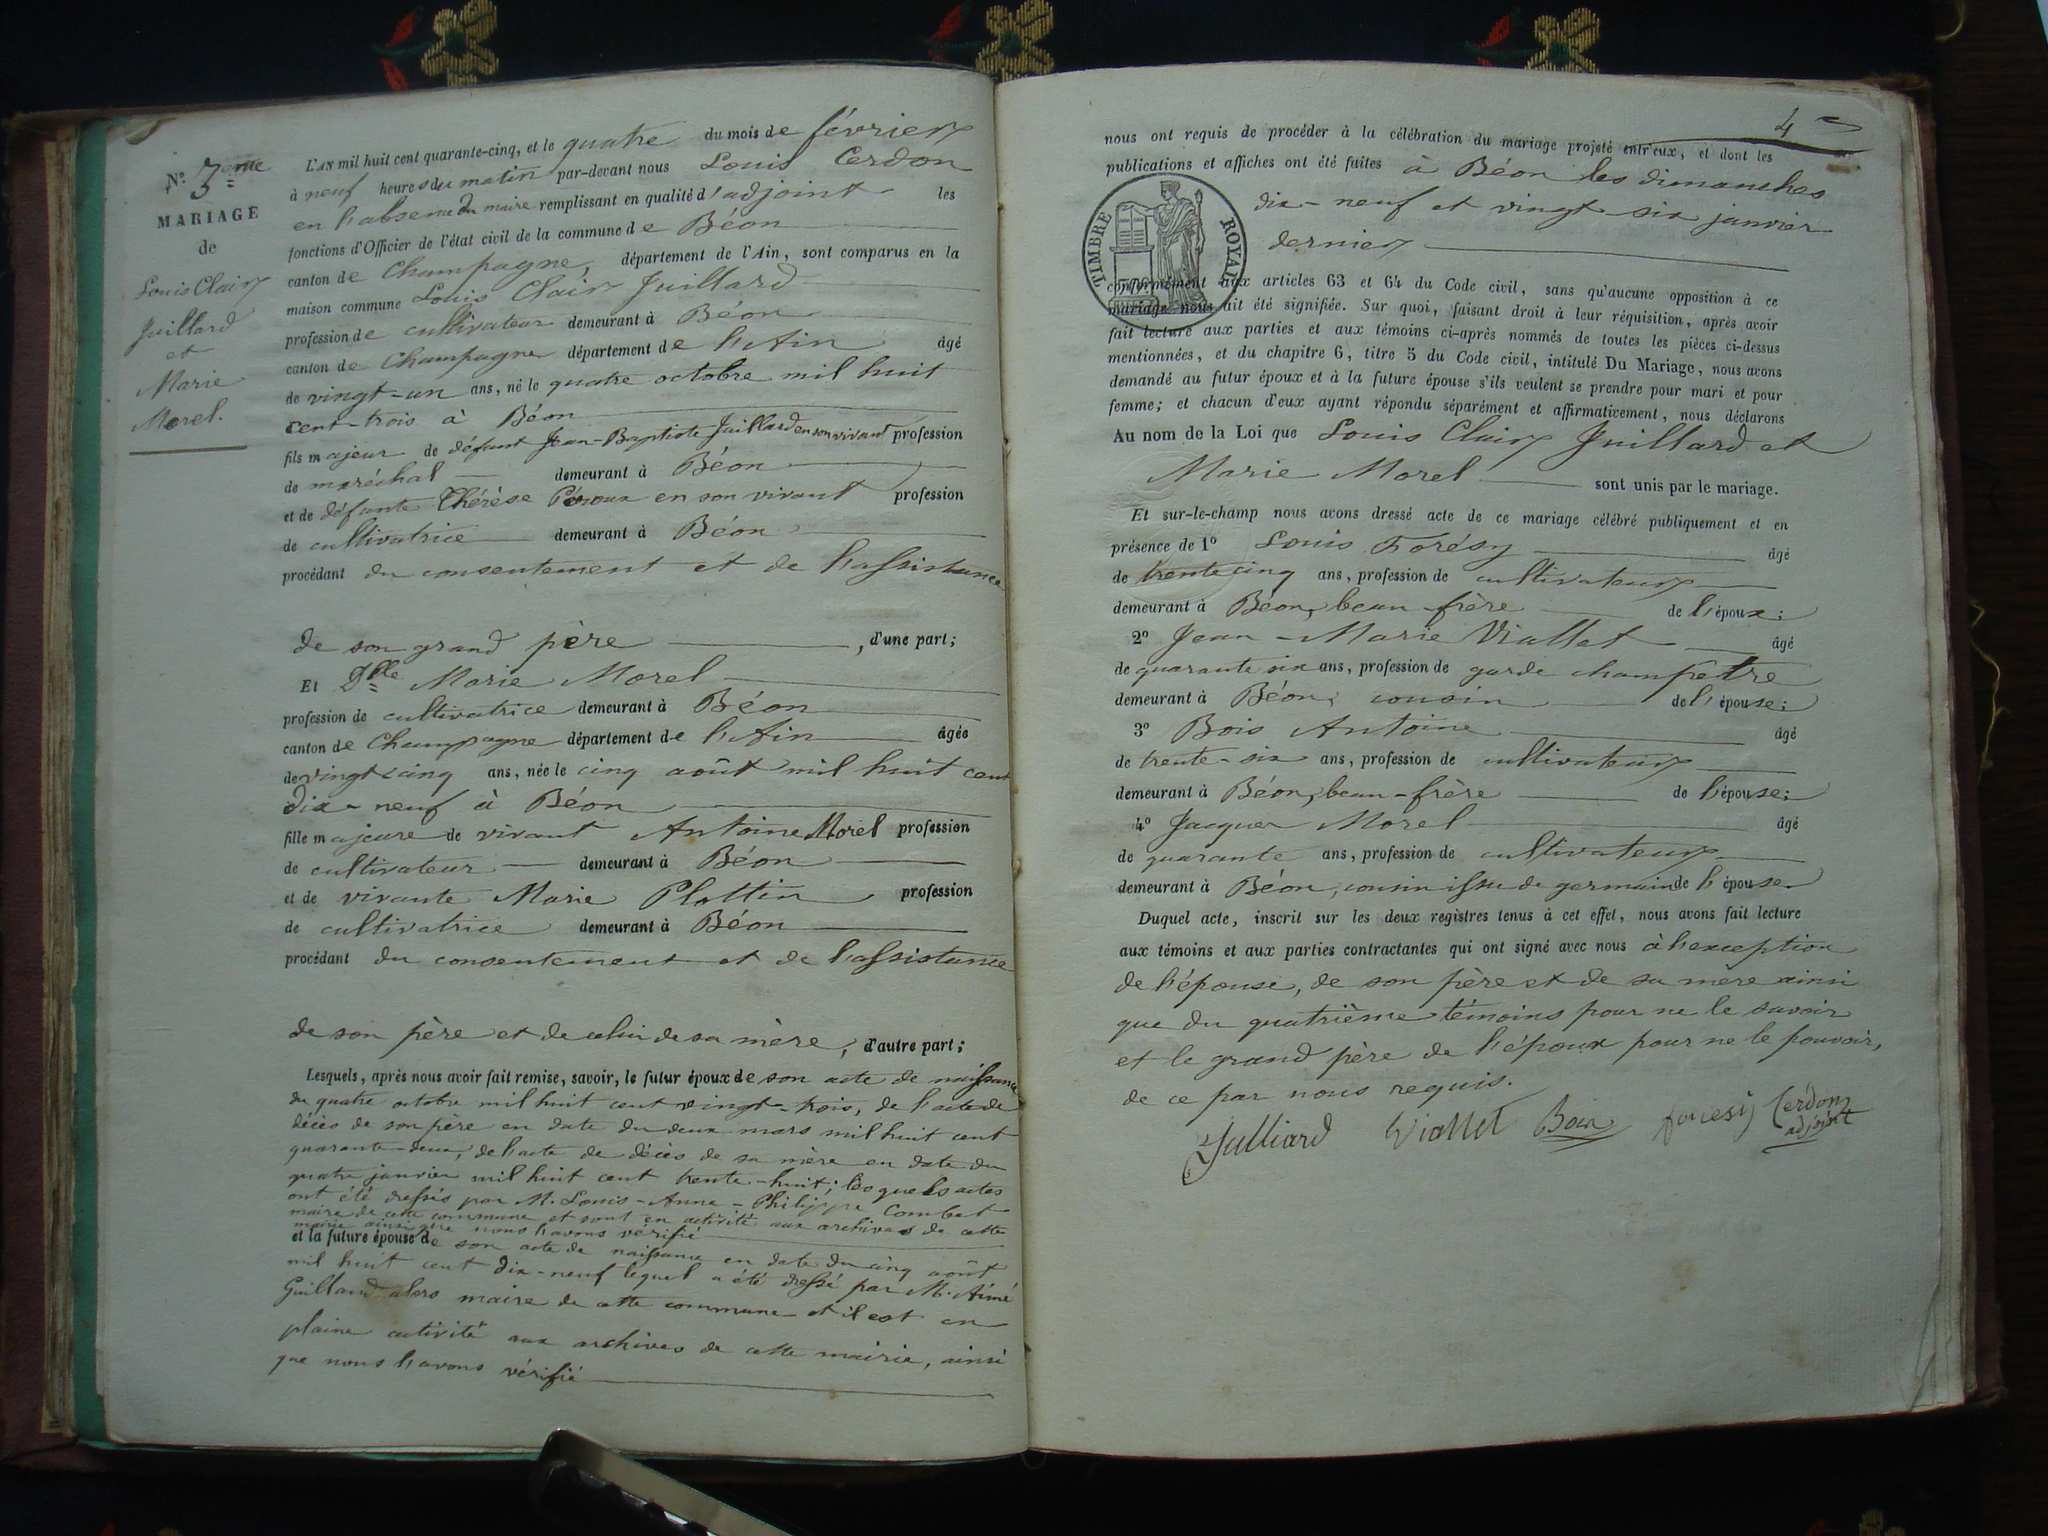 N.º 3ème
MARIAGE
de
Louis Clair
Juillard
et
Marie
Morel.
L'AN mil huit cent quarante-cinq, et le quatre du mois de février
à neuf heures du matin par-devant nous Louis Cerdon
en l'absence du maire remplissant en qualité d'adjoint les
fonctions d'Officier de l'état civil de la commune de Béon
canton de Champagne, département de l'Ain, sont comparus en la
maison commune Louis Clair Juillard
profession de cultivateur demeurant à Béon
canton de Champagne département de l'Ain âgé
de vingt-un ans, né le quatre octobre mil huit
cent-trois à Béon
fils majeur de défunt Jean-Baptiste Juillard en son vivant profession
de maréchal demeurant à Béon
et de défunte Thérèse en son vivant profession
de cultivatrice demeurant à Béon
procédant du consentement et de l'assistance
de son grand père , d'une part;
Et Dlle Marie Morel
profession de cultivatrice demeurant à Béon
canton de Champagne département de l'Ain âgée
de vingt cinq ans, née le cinq août mil huit cent
dix-neuf à Béon
fille majeure de vivant Antoine Morel profession
de cultivateur demeurant à Béon
et de vivante Marie Plattin profession
de cultivatrice demeurant à Béon
procédant du consentement et de l'assistance
de son père et de celui de sa mère, d'autre part;
Lesquels, après nous avoir fait remise, savoir, le futur époux de son acte de naissance
du quatre octobre mil huit cent vingt-trois, de l'acte de
décès de son père en date du deux mars mil huit cent
quarante-deux, de l'acte de décès de sa mère en date du
quatre janvier mil huit cent trente-huit; lesquels actes
ont été dressés par M. Louis-Anne-Philippe Combet
maire de cette commune et sont en activité aux archives de cette
mairie ainsi que nous l'avons vérifié
et la future épouse de son acte de naissance en date du cinq août
mil huit cent dix-neuf lequel a été dressé par M. Aimé
Guilland alors maire de cette commune et il est en
plaine activité aux archives de cette mairie, ainsi
que nous l'avons vérifié
4
nous ont requis de procéder à la célébration du mariage projeté entr'eux, et dont les
publications et affiches ont été faites à Béon les dimanches
dix-neuf et vingt six janvier
dernier
TIMBRE ROYAL
conformément aux articles 63 et 64 du Code civil, sans qu'aucune opposition à ce
mariage nous ait été signifiée. Sur quoi, faisant droit à leur réquisition, après avoir
fait lecture aux parties et aux témoins ci-après nommés de toutes les pièces ci-dessus
mentionnées, et du chapitre 6, titre 5 du Code civil, intitulé Du Mariage, nous avons
demandé au futur époux et à la future épouse s'ils veulent se prendre pour mari et pour
femme; et chacun d'eux ayant répondu séparément et affirmativement, nous déclarons
Au nom de la Loi que Louis Clair Juillard et
Marie Morel sont unis par le mariage.
Et sur-le-champ nous avons dressé acte de ce mariage célébré publiquement et en
présence de 1º Louis Forésy âgé
de trente cinq ans, profession de cultivateur
demeurant à Béon, beau-frère de l'époux;
2º Jean-Marie Viallet âgé
de quarante six ans, profession de garde champetre
demeurant à Béon, cousin de l'épouse;
3º Bois Antoine âgé
de trente-six ans, profession de cultivateur
demeurant à Béon, beau-frère de l'épouse;
4º Jacques Morel âgé
de quarante ans, profession de cultivateur
demeurant à Béon, cousin issu de germain de l'épouse
Duquel acte, inscrit sur les deux registres tenus à cet effet, nous avons fait lecture
aux témoins et aux parties contractantes qui ont signé avec nous à l'exception
de l'épouse, de son père et de sa mère ainsi
que du quatrième témoins pour ne le savoir
et le grand père de l'époux pour ne le pouvoir,
de ce par nous requis.
Julliard Viallet Bois foresy Cerdon
adjoint